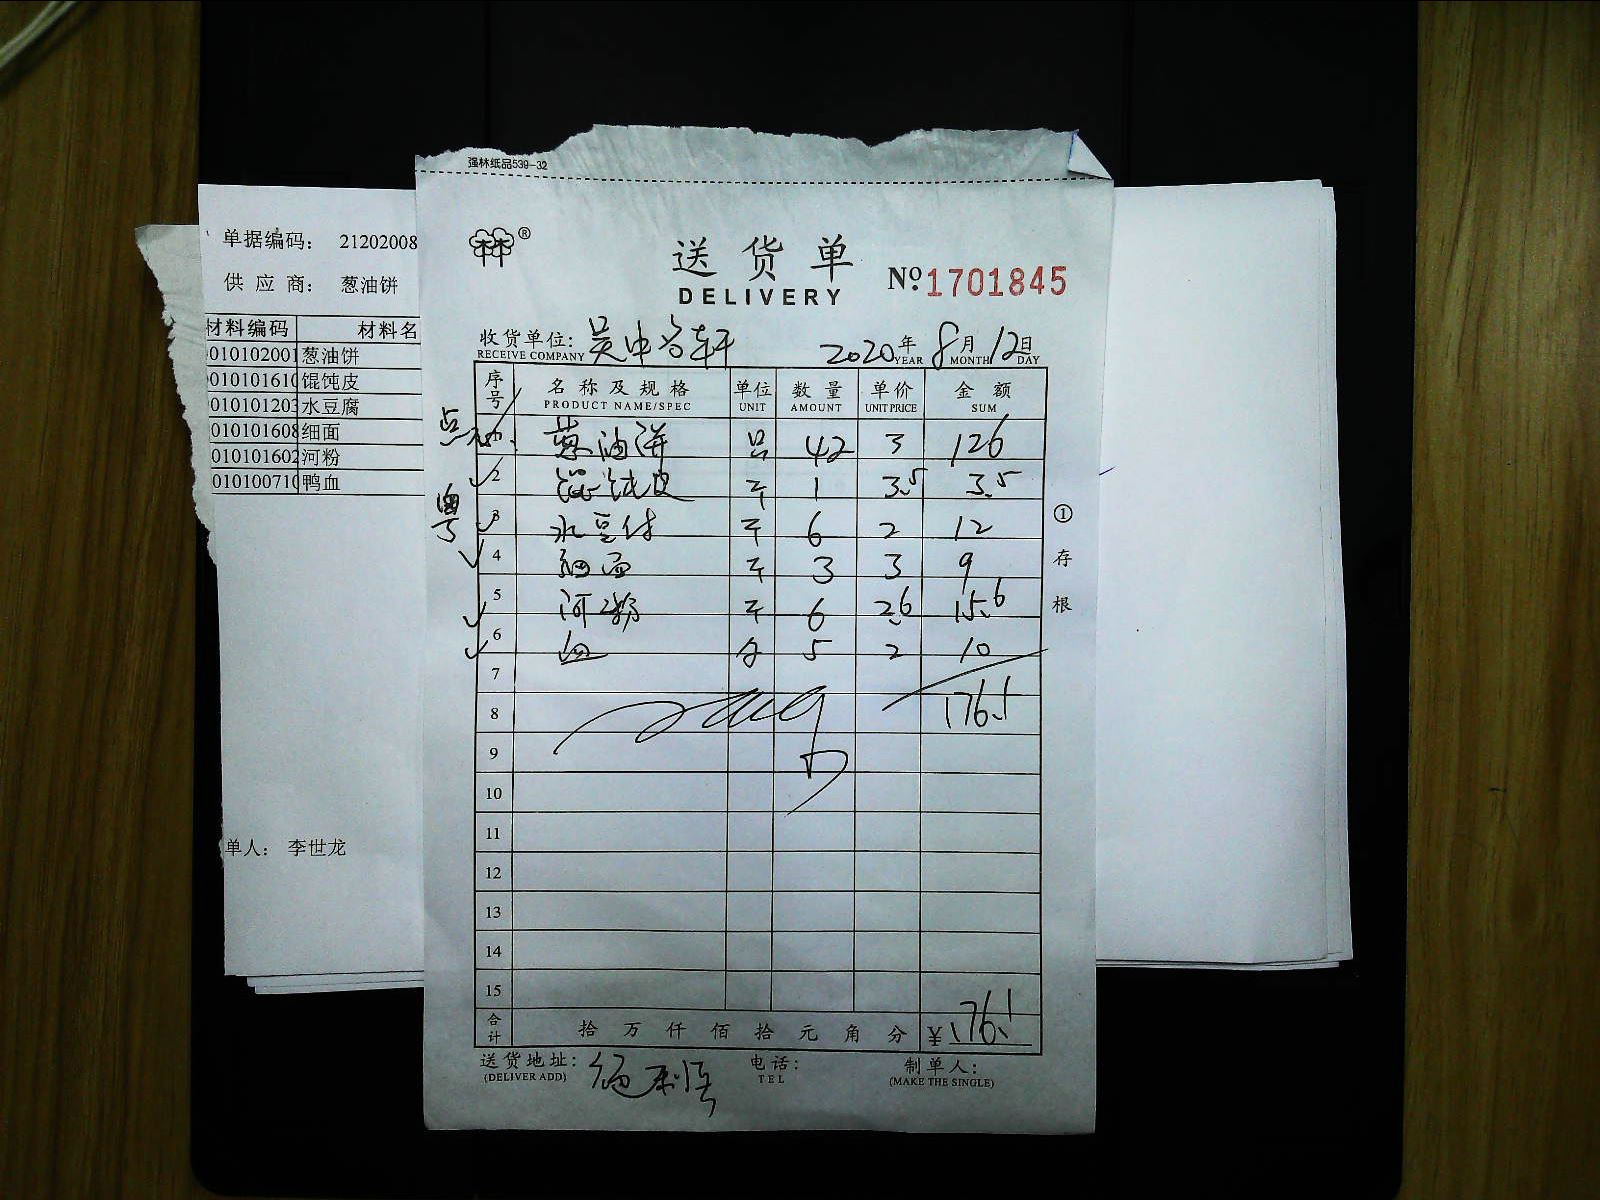 强林纸品539-32
单据编码： 21202008
供 应 商： 葱油饼
材料编码 材料名
010102001 葱油饼
010101610 馄饨皮
010101203 水豆腐
010101608 细面
010101602 河粉
010100710 鸭血
单人： 李世龙
林林®
送货单
DELIVERY
№ 1701845
收货单位:
RECEIVE COMPANY
2020 年 8 月 12 日
YEAR MONTH DAY
序号 名称及规格 单位 数量 单价 金额
PRODUCT NAME/SPEC UNIT AMOUNT UNIT PRICE SUM
葱油饼 只 42 3 126
2 馄饨皮 斤 1 3.5 3.5
3 水豆付 斤 6 2 12
4 细面 斤 3 3 9
5 河粉 斤 6 2.6 15.6
6 血 5 2 10
7
8 176.1
9
10
11
12
13
14
15
合计 拾 万 仟 佰 拾 元 角 分 ¥ 176.1
送货地址:
(DELIVER ADD)
电话:
TEL
制单人:
(MAKE THE SINGLE)
①存根